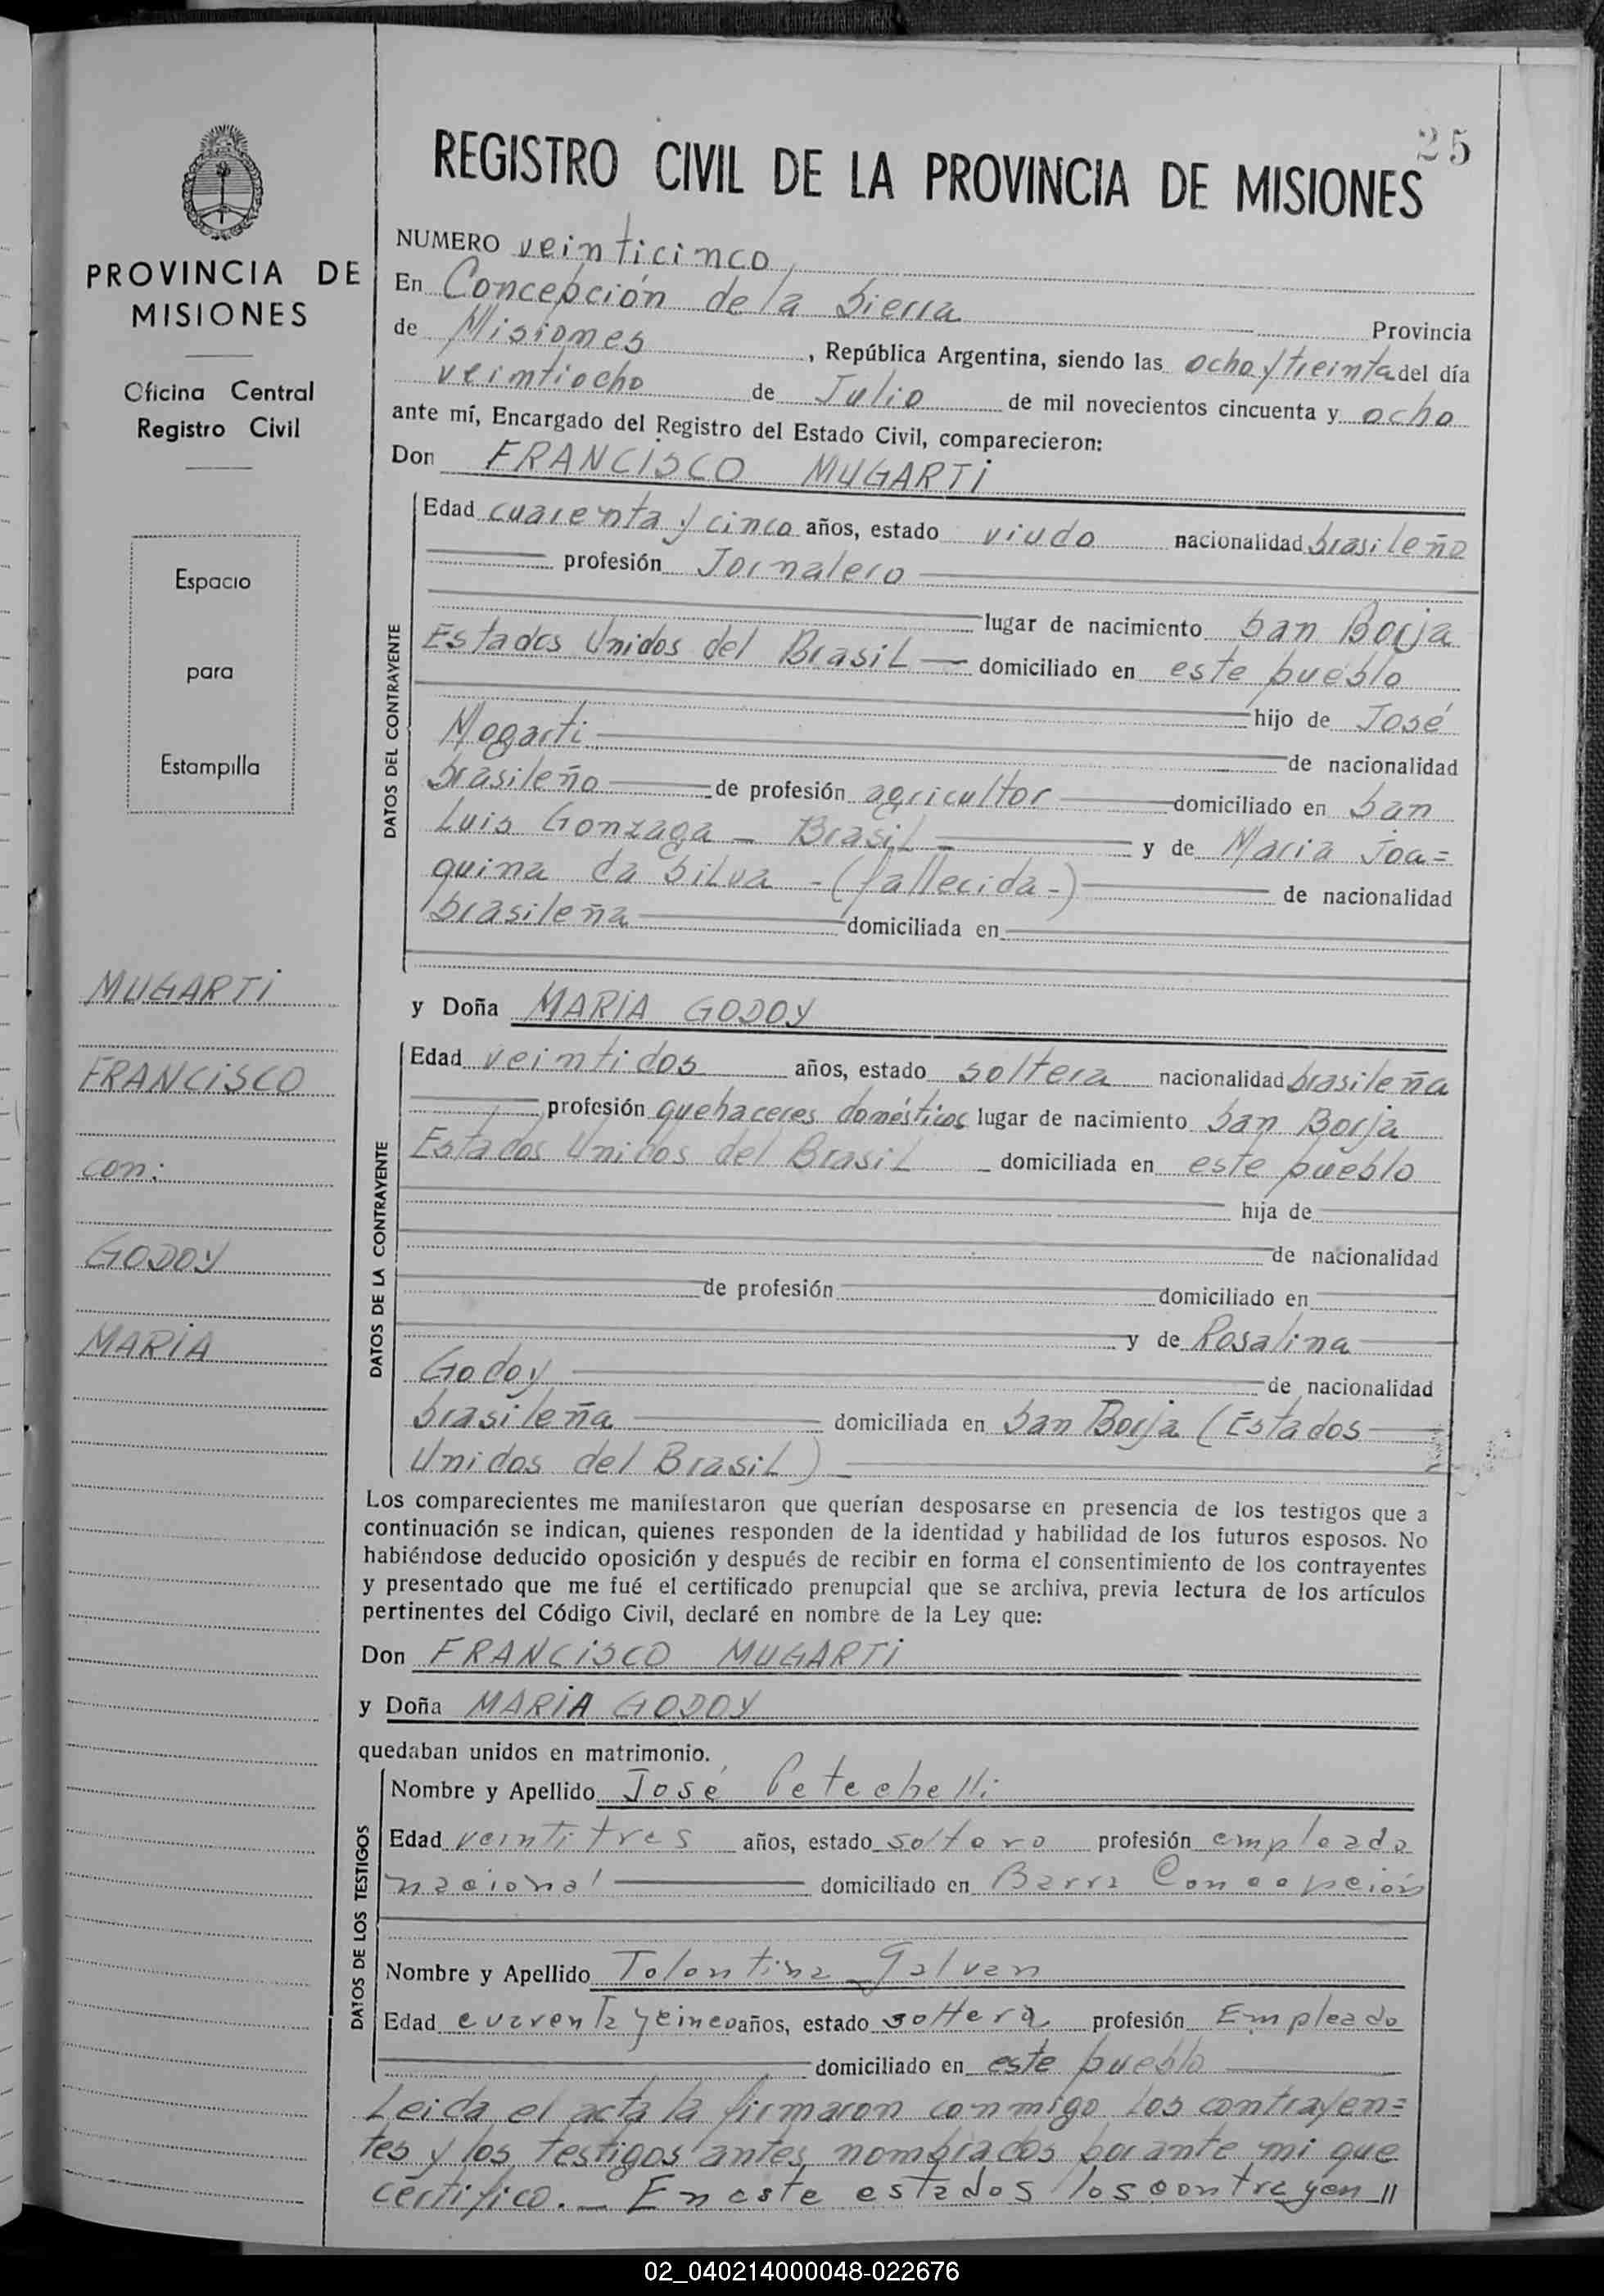 25
REGISTRO CIVIL DE LA PROVINCIA DE MISIONES
PROVINCIA DE
MISIONES
Oficina Central
Registro Civil
Espacio
para
Estampilla
MUGARTI
FRANCISCO
con:
GODOY
MARIA
NUMERO veinticinco
En Concepción de la Sierra Provincia
de Misiones, República Argentina, siendo las ocho y treinta del día
veintiocho de Julio de mil novecientos cincuenta y ocho
ante mí, Encargado del Registro del Estado Civil, comparecieron:
Don FRANCISCO MUGARTI
DATOS DEL CONTRAYENTE
Edad cuarenta y cinco años, estado viudo nacionalidad brasileño
profesión Jornalero
lugar de nacimiento San Borja
Estados Unidos del Brasil — domiciliado en este pueblo
hijo de José
Mogarti de nacionalidad
brasileño de profesión agricultor domiciliado en San
Luis Gonzaga - Brasil - y de Maria Joa=
quina da Silva - (fallecida-) de nacionalidad
brasileña domiciliada en
y Doña MARIA GODOY
DATOS DE LA CONTRAYENTE
Edad veintidos años, estado soltera nacionalidad brasileña
profesión quehaceres domésticos lugar de nacimiento San Borja
Estados Unidos del Brasil domiciliada en este pueblo
hija de
de nacionalidad
de profesión domiciliado en
y de Rosalina
Godoy de nacionalidad
brasileña domiciliada en San Borja (Estados
Unidos del Brasil)
Los comparecientes me manifestaron que querían desposarse en presencia de los testigos que a
continuación se indican, quienes responden de la identidad y habilidad de los futuros esposos. No
habiéndose deducido oposición y después de recibir en forma el consentimiento de los contrayentes
y presentado que me fué el certificado prenupcial que se archiva, previa lectura de los artículos
pertinentes del Código Civil, declaré en nombre de la Ley que:
Don FRANCISCO MUGARTI
y Doña MARIA GODOY
quedaban unidos en matrimonio.
DATOS DE LOS TESTIGOS
Nombre y Apellido José Petechelli
Edad veintitres años, estado soltero profesión empleado
nacional domiciliado en Barra Concepción
Nombre y Apellido Tolentina Galvan
Edad cuarenta y cinco años, estado soltera profesión Empleado
domiciliado en este pueblo
Leida el acta la firmaron conmigo los contrayen=
tes y los testigos antes nombrados por ante mi que
certifico. _ En este estados los contrayen //
02_040214000048-022676